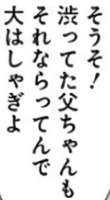 そうそ！
渋ってた父ちゃんも
それならってんで
大はしゃぎよ